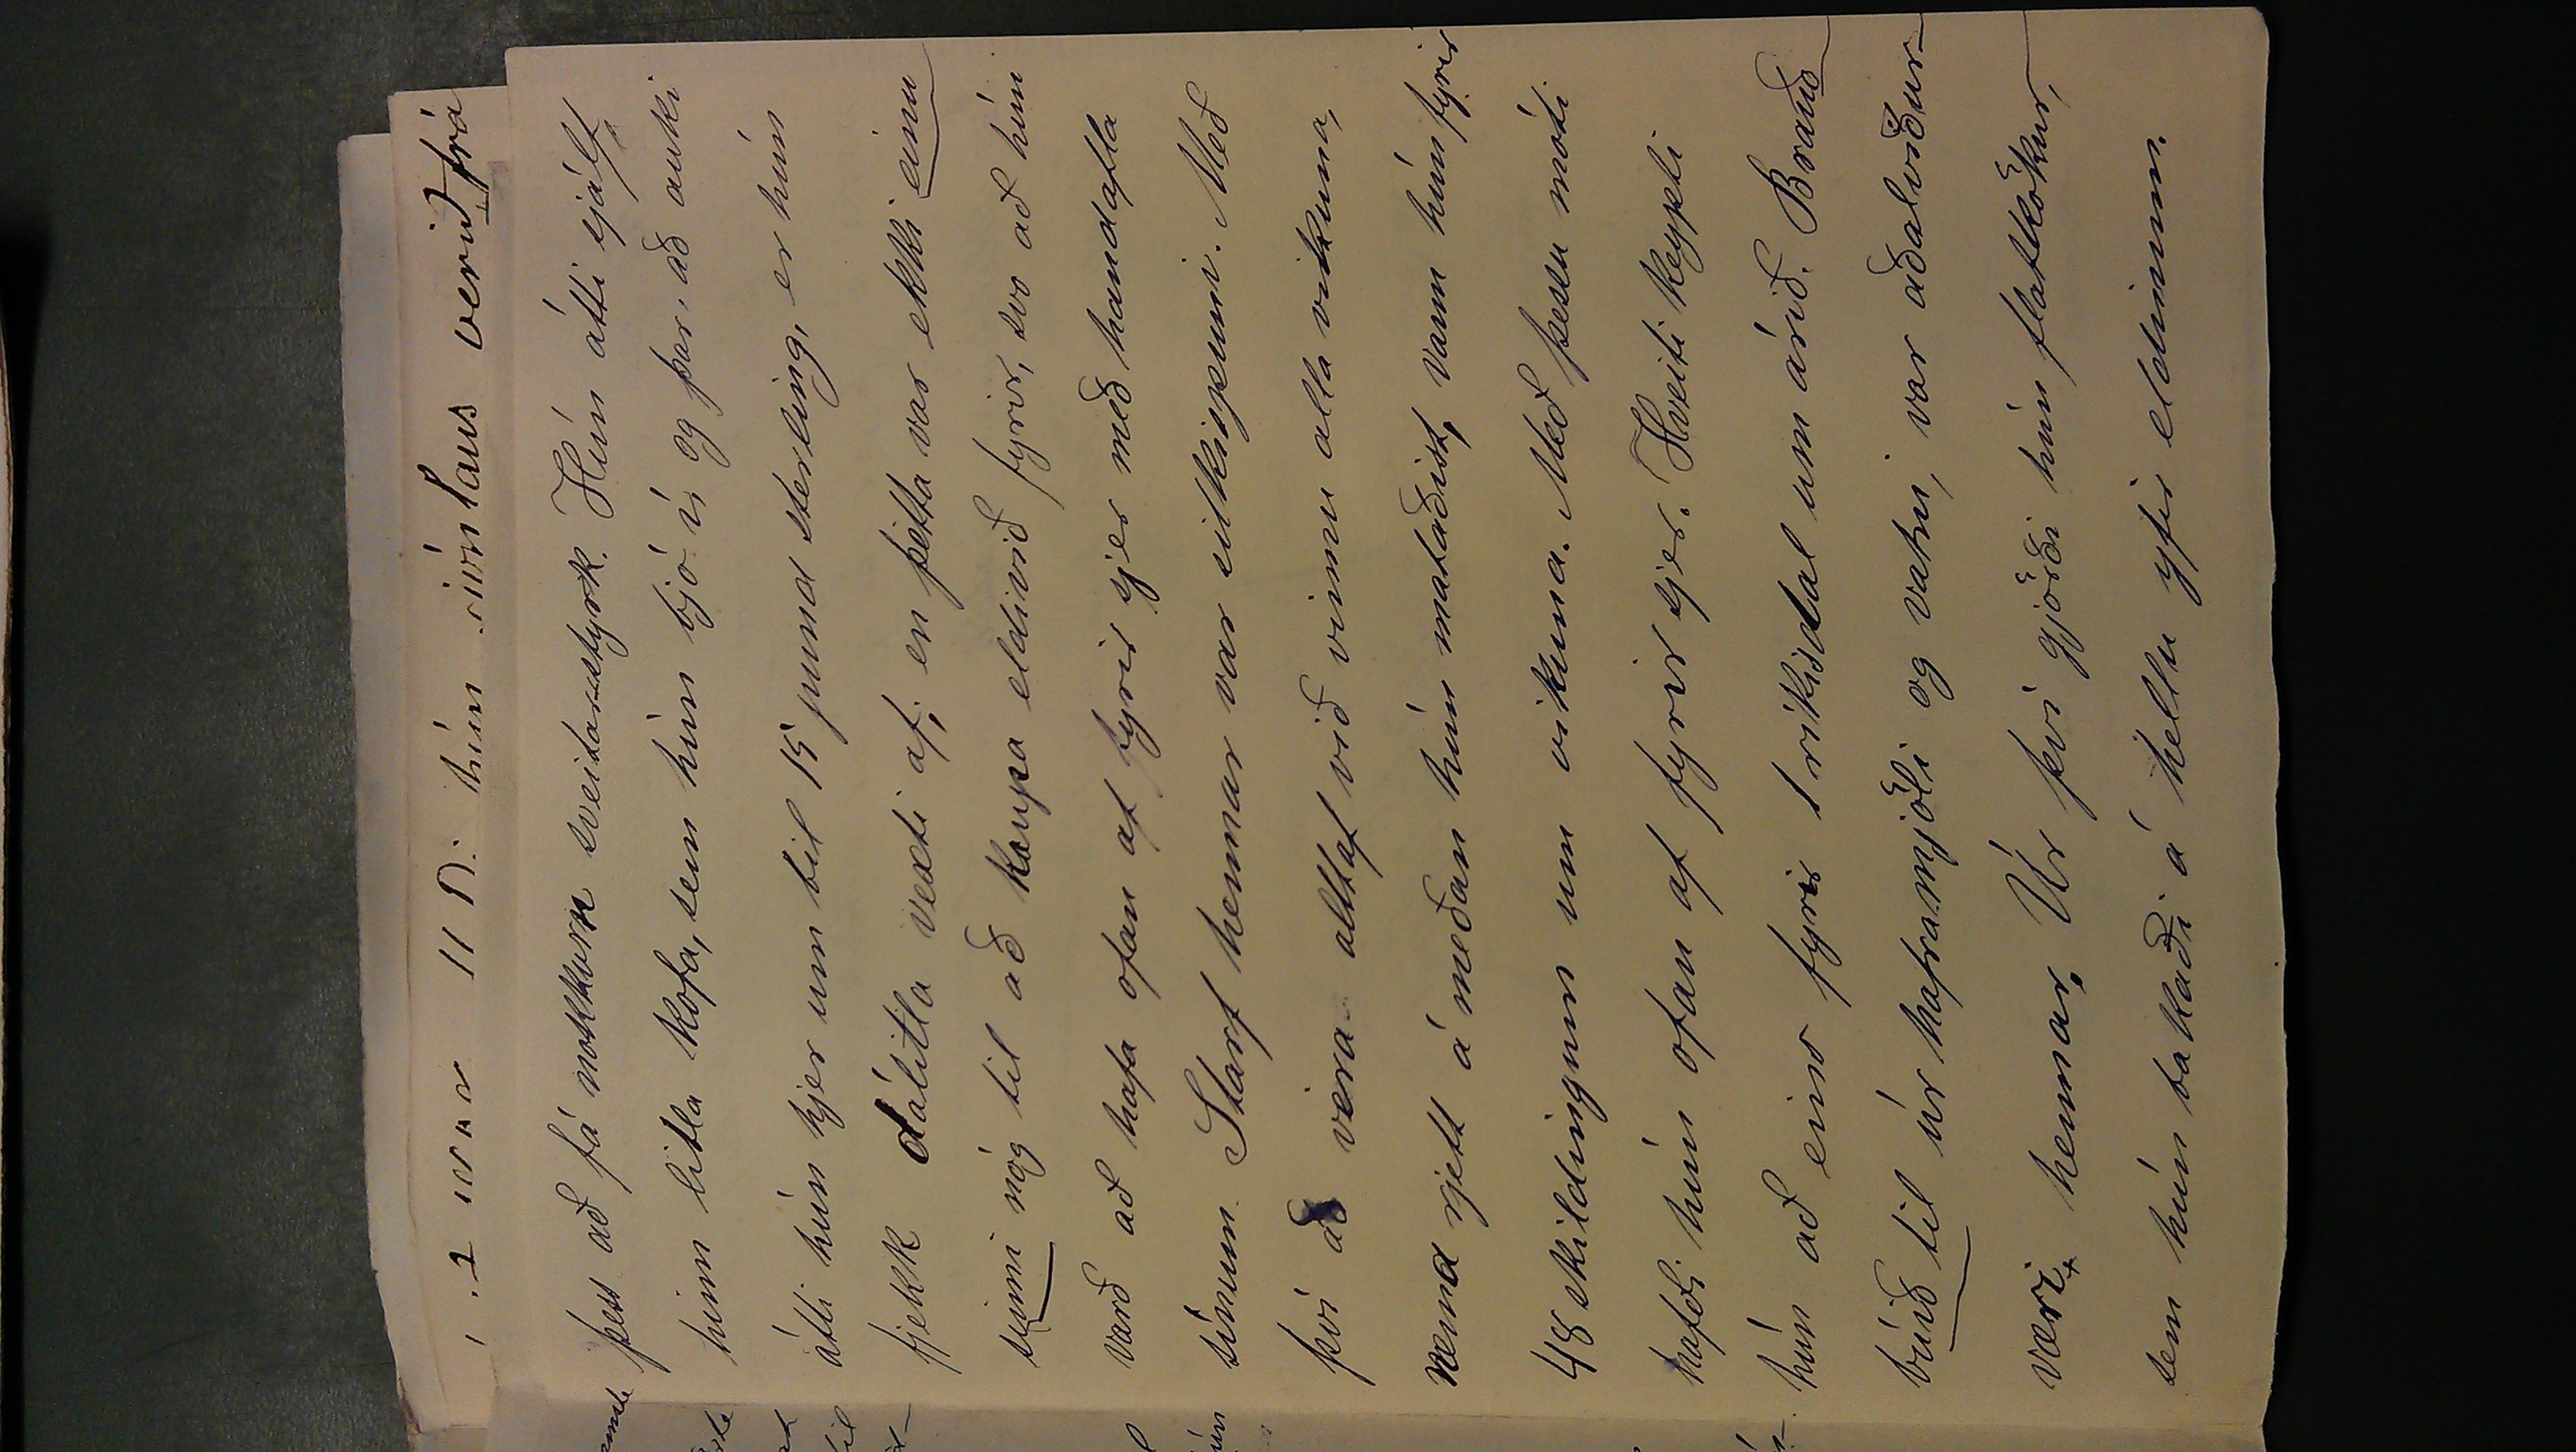 hún sivinlaus verið frá
þess að fá nokkurn sveitarstyrk. Hún átti sjálf
hinn litla kofa, sem hún bjó í, og þar að auki
átti hún hjer um bil 15 pund sterling, er hún
fjekk dálitla vexti af; en þetta var ekki einu
sinni nóg til að kaupa eldivið fyrir, svo að hún
varð að hafa ofan af fyrir sjer með handafla
sínum. Starf hennar var silkispunni. Með
því að vera alltaf við vinnu alla vikuna,
nema rjett á meðan hún mataðist, vann hún fyrir
48 skildingum um vikuna. Með þessu móti
hafði hún ofan af fyrir sjer. Hveiti keypti
hún að eins fyrir 1 ríkisdal um árið. Brauð
búið til úr haframjöli og vatni, var aðalviður-
væri hennar. Úr því gjörði hún flatkökur,
sem hún bakaði á hellu yfir eldinum.